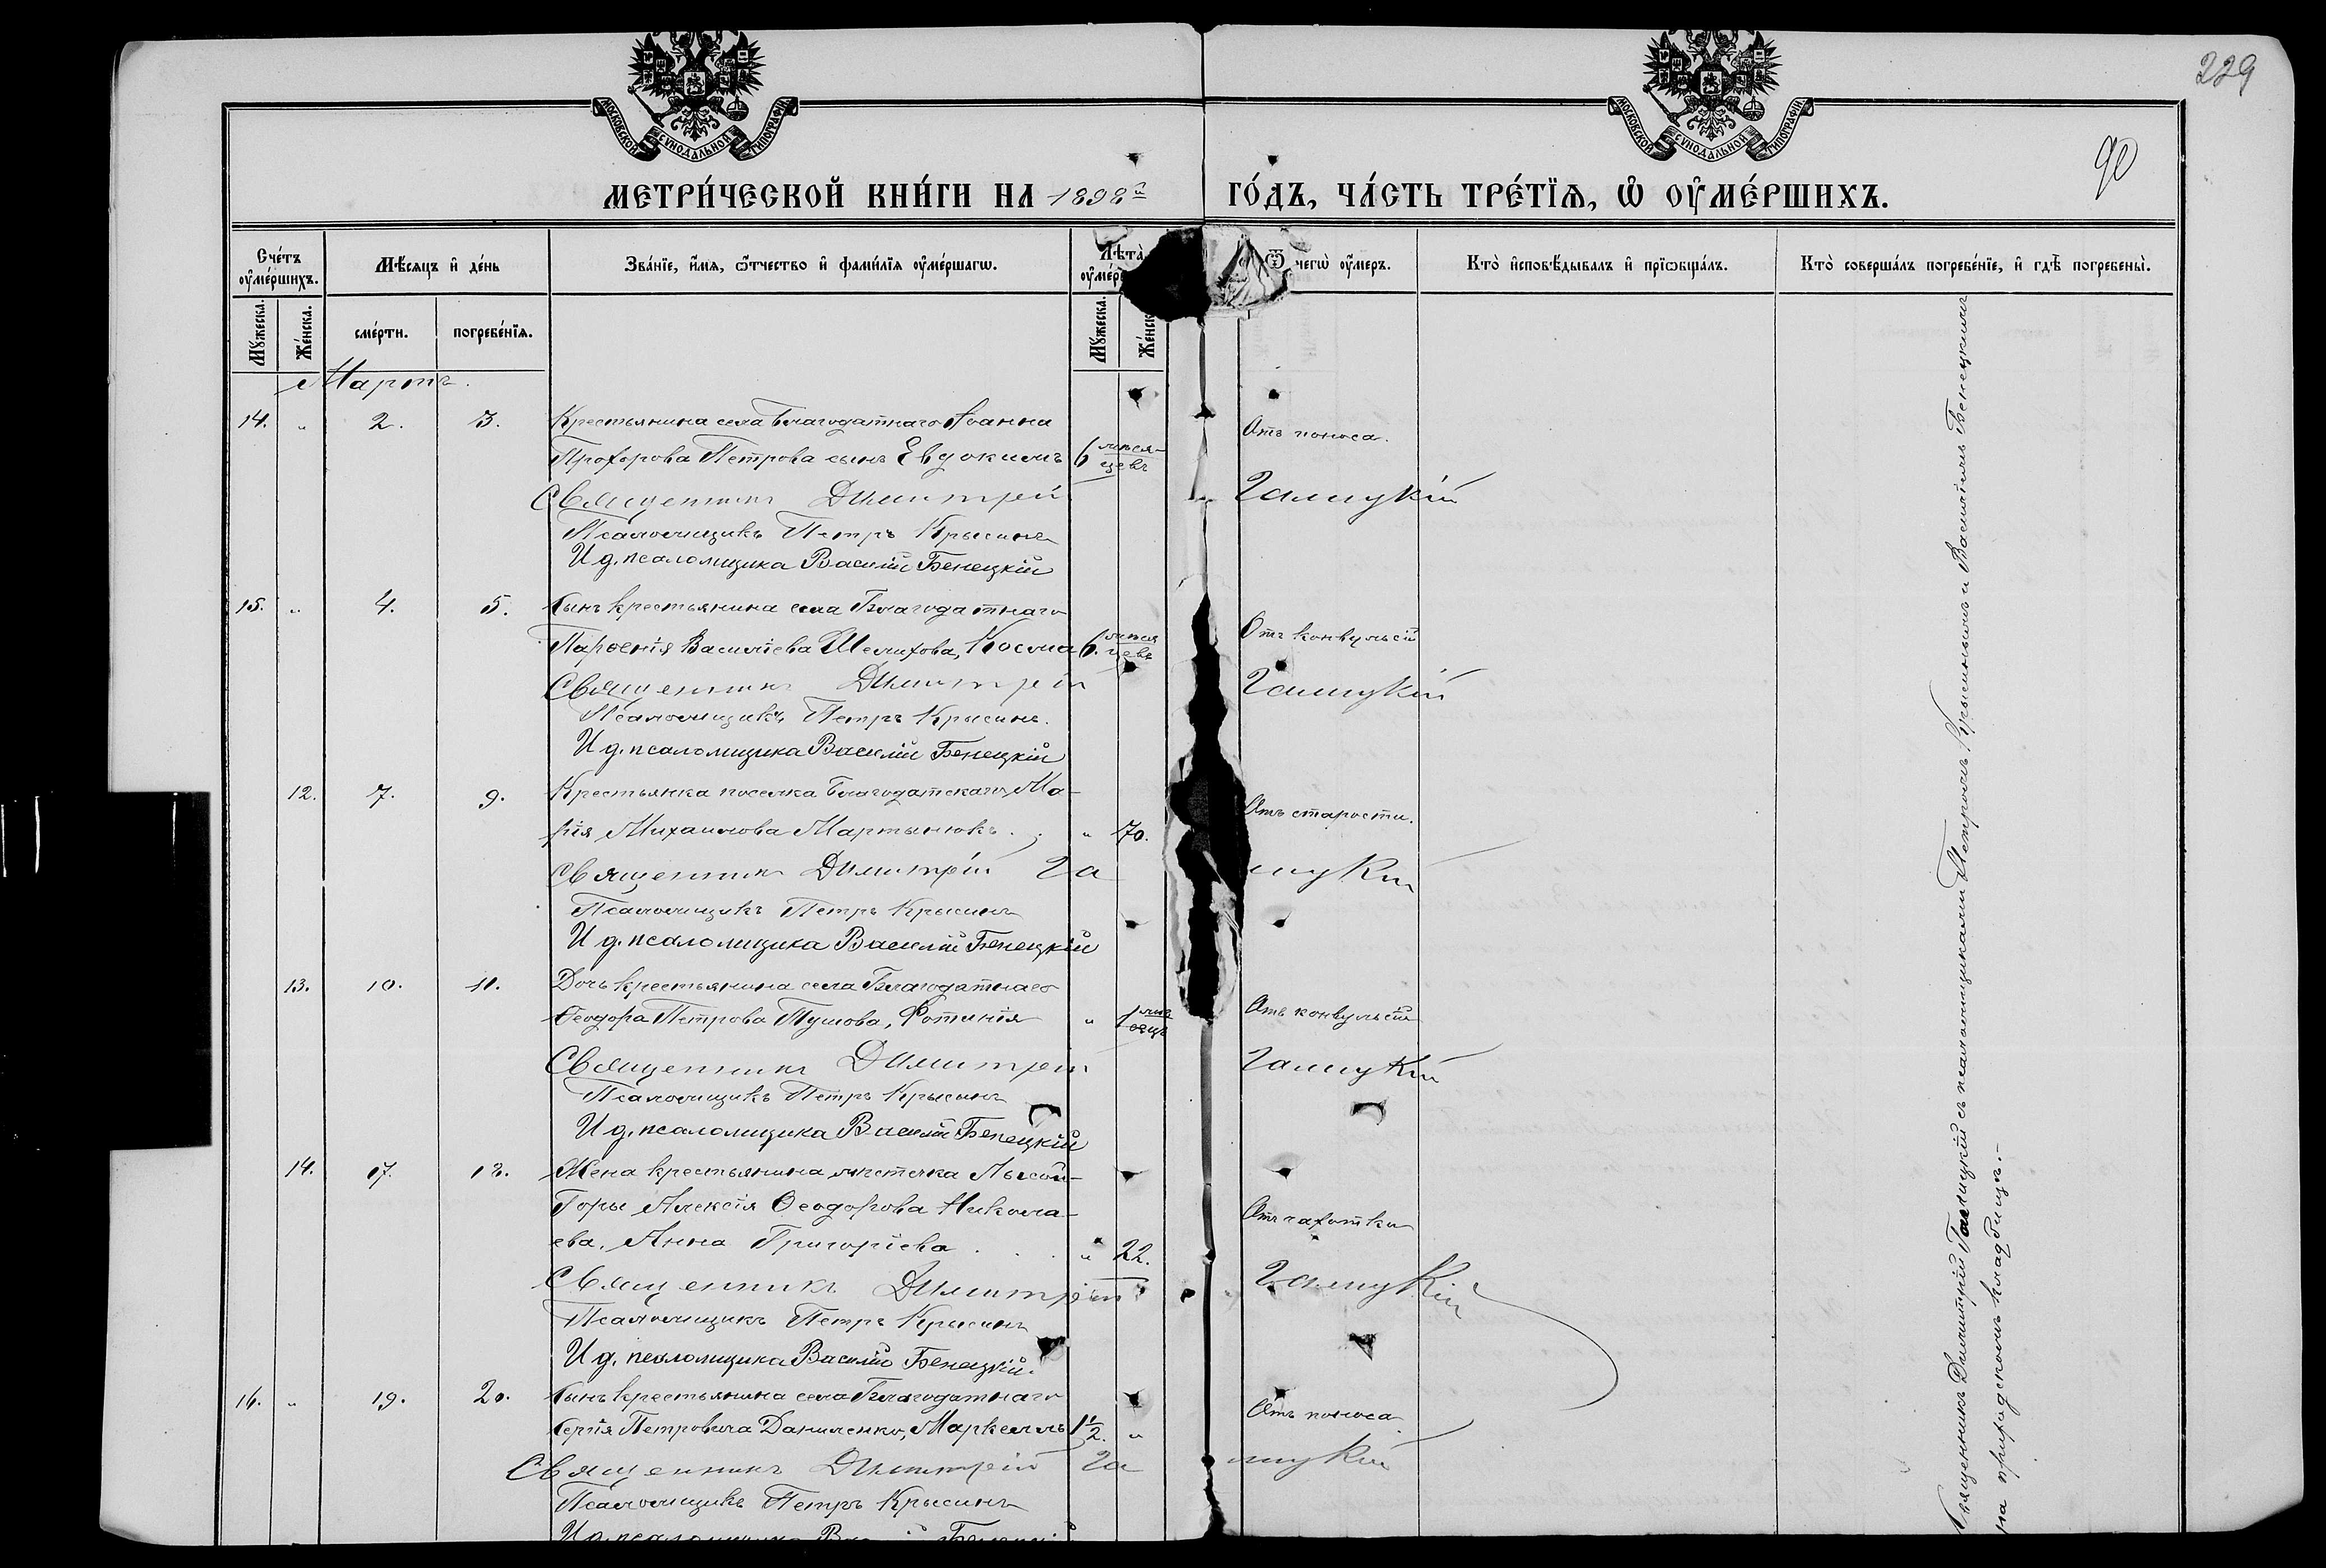 229
90
МОСКОВСКОЙ СѴНОДАЛЬНОЙ ТИПОГРАФІИ
МОСКОВСКОЙ СѴНОДАЛЬНОЙ ТИПОГРАФІИ
МЕТРИ́ЧЕСКОЙ КНИ́ГИ НА 1898й ГО́ДЪ, ЧА́СТЬ ТРЕ́ТЇѦ, Ѡ҆ ОУ҆МЕ́РШИХЪ.
Сче́тъ оу҆ме́ршихъ.
Мѣ́сѧцъ и҆ де́нь
Зва́нїе, и҆́мѧ, ѻ҆́тчество и҆ фами́лїѧ оу҆ме́ршагѡ.
Лѣта̀
Ѿ чегѡ̀ оу҆́меръ.
Кто̀ и҆сповѣ́дывалъ и҆ прїѡбща́лъ.
Кто̀ соверша́лъ погребе́нїе, и҆ гдѣ̀ погребены̀.
Мꙋ́жеска.
Же́нска.
сме́рти.
погребе́нїѧ.
Мꙋ́жеска.
Мартъ.
14. " 2. 3. Крестьянина села Благодатнаго Іоанна
Прохорова Петрова сынъ Евдокимъ 6 мѣся-цевъ Отъ поноса.
Священникъ Димитрій Галицкій
Псаломщикъ Петръ Крысинъ
И д. псаломщика Василій Бенецкій
15. " 4. 5. Сынъ крестьянина села Благодатнаго
Парѳенія Василіева Шелихова, Косма 6. мѣсяцевъ Отъ конвульсій
Священникъ Димитрій Галицкій
Псаломщикъ Петръ Крысинъ.
И д. псаломщика Василій Бенецкій
12. 7. 9. Крестьянка поселка Благодатскаго Ма-
рія Михаилова Мартынюкъ. " 70. Отъ старости.
Священникъ Димитрій Галицкій
Псаломщикъ Петръ Крысинъ
И д. псаломщика Василій Бенецкій
13. 10. 11. Дочь крестьянина села Благодатнаго
Ѳеодора Петрова Тушова, Фотинія " 1 мѣсецъ Отъ конвульсій
Священникъ Димитрій Галицкій
Псаломщикъ Петръ Крысинъ
И д. псаломщика Василій Бенецкій
14. 17. 18. Жена крестьянина мѣстечка Лысой-
Горы Алексія Ѳеодорова Никола-
ева, Анна Григоріева. " 22. Отъ чахотки
Священникъ Димитрій Галицкій
Псаломщикъ Петръ Крысинъ
И д. псаломщика Василій Бенецкій.
16. " 19. 20. Сынъ крестьянина села Благодатнаго
Сергія Петровича Даниленко, Маркеллъ 1½. " Отъ поноса
Священникъ Димитрій Галицкій
Псаломщикъ Петръ Крысинъ
И д. псаломщика Василій Бенецкій
Священникъ Димитрій Галицкій съ псаломщиками Петромъ Крысинымъ и Василіемъ Бенецкимъ
на приходскомъ кладбищѣ.-